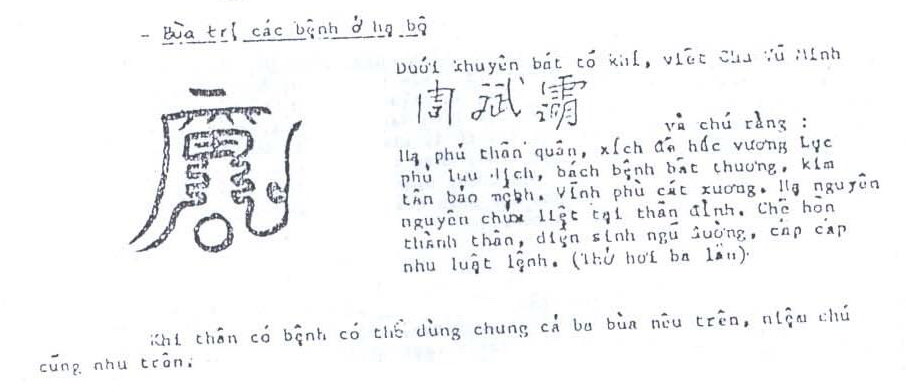 - Bùa trị các bệnh ở hạ bộ
Dưới khuyên bát tố khí, viết Chu Vũ Minh
周
và chú rằng :
Hạ phủ thần quân, xích đế hắc vương Lục
phủ lưu dịch, bách bệnh bất thương, kim
tân bảo mệnh. Vĩnh phù cát xương. Hạ nguyên
nguyên chủ liệt tại thần đình. Chế hồn
thành thần, diện sinh ngũ cấp cấp
như luật lệnh. (thở hơi ba lần).
Khi thân có bệnh có thể dùng chung cả ba bùa nêu trên, niệm chú
cũng như trên.